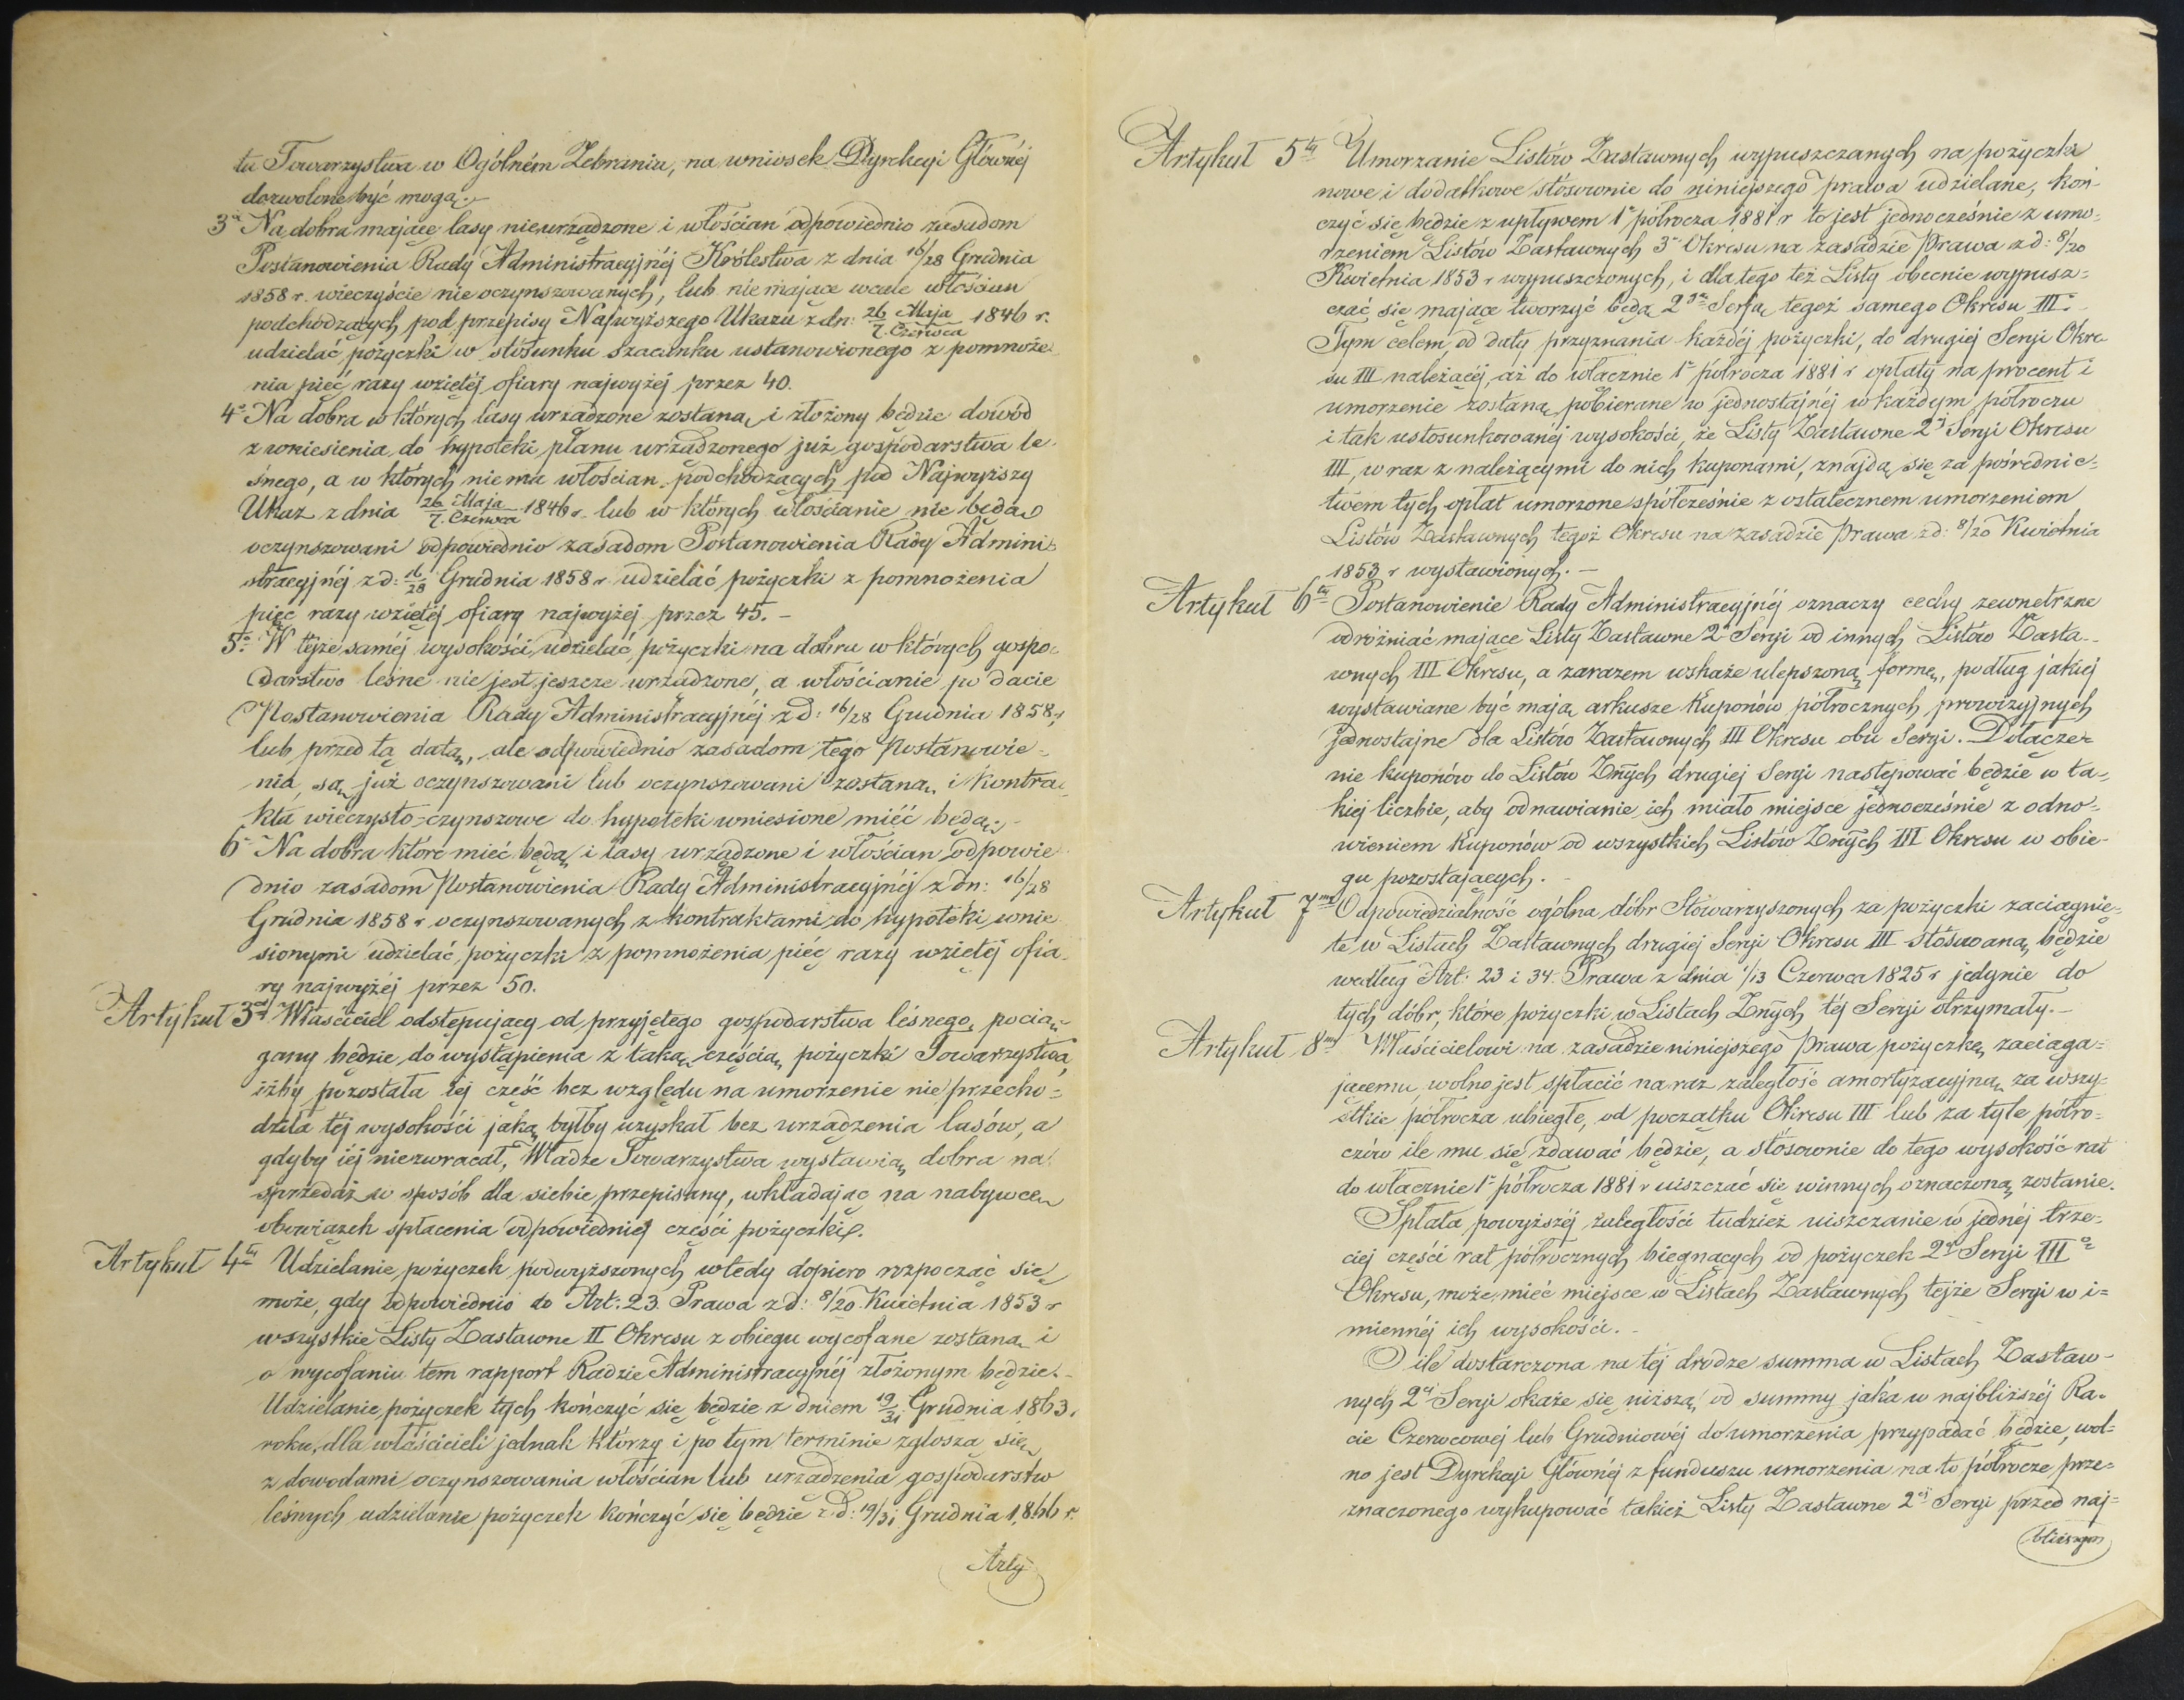 tu Towarzystwa w Ogólném Zebraniu, na wniosek Dyrekcyi Głównéj
dozwolone być mogą.
3° Na dobra mające lasy nieurządzone i włościan odpowiednio zasadom
Postanowienia Rady Administracyjnéj Królestwa z dnia 16/28 Grudnia
1858 r. wieczyście nie oczynszowanych, lub nie mające wcale włościan
podchodzących pod przepisy Najwyższego Ukazu z dn: 26 Maja/7. Czerwca 1846 r.
udzielać pożyczki w stósunku szacunku ustanowionego z pomnoże
nia pięć razy wziętéj ofiary najwyżej przez 40.
4° Na dobra w których lasy urządzone zostaną i złożony będzie dowód
z wniesienia do hypoteki planu urządzonego już gospodarstwa le-
śnego, a w których niema włościan podchodzących pod Najwyższy
Ukaz z dnia 26 Maja/7. Czerwca 1846 r. lub w których włościanie nie będą
oczynszowani odpowiednio zasadom Postanowienia Rady Admini-
stracyjnéj z d: 16/28 Grudnia 1858 r udzielać pożyczki z pomnożenia
pięć razy wziętéj ofiary najwyżej przez 45. –
5° W tejże saméj wysokości udzielać pożyczki na dobra w których gospo-
darstwo leśne nie jest jeszcze urządzone, a włościanie po dacie
Postanowienia Rady Administracyjnéj z d: 16/28 Grudnia 1858 r
lub przed tą datą, ale odpowiednio zasadom tego Postanowie-
nia, są już oczynszowani lub oczynszowani zostaną i kontra-
kta wieczysto-czynszowe do hypoteki wniesione mieć będą.
6° Na dobra które mieć będą i lasy urządzone i włościan odpowie
dnio zasadom Postanowienia Rady Administracyjnéj z dn: 16/28
Grudnia 1858 r oczynszowanych z kontraktami do hypoteki wnie
sionymi udzielać pożyczki z pomnożenia pięć razy wziętéj ofia-
ry najwyżéj przez 50.
Artykuł 3ci Właściciel odstępujący od przyjętego gospodarstwa leśnego, pocią-
gany będzie do wystąpienia z taką częścią pożyczki Towarzystwa,
iżby pozostała jej część bez względu na umorzenie nie przecho-
dziła téj wysokości jaką byłby uzyskał bez urządzenia lasów, a
gdyby iéj niezwracał, Władze Towarzystwa wystawią dobra na
sprzedaż w sposób dla siebie przepisany, wkładając na nabywcę
obowiązek spłacenia odpowiedniej części pożyczki.
Artykuł 4ty Udzielanie pożyczek podwyższonych wtedy dopiero rozpocząć się
może, gdy odpowiednio do Art: 23. Prawa z d: 8/20 Kwietnia 1853 r
wszystkie Listy Zastawne II Okresu z obiegu wycofane zostaną i
o wycofaniu tem rapport Radzie Administracyjnéj złożonym będzie.
Udzielanie pożyczek tych kończyć się będzie z dniem 19/31 Grudnia 1863.
roku, dla właścicieli jednak którzy i po tym terminie zgłoszą się
z dowodami oczynszowania włościan lub urządzenia gospodarstw
leśnych udzielanie pożyczek kończyć się będzie z d: 19/31 Grudnia 1866 r.
Arty
Artykuł 5ty Umorzanie Listów Zastawnych wypuszczanych na pożyczki
nowe i dodatkowe stósownie do niniejszego prawa udzielane, koń-
czyć się będzie z upływem 1° półrocza 1881 r to jest jednocześnie z umo-
rzeniem Listów Zastawnych 3° Okresu na zasadzie Prawa z d: 8/20
Kwietnia 1853 r wypuszczonych, i dla tego też Listy obecnie wypusz-
czać się mające tworzyć będą 2gą Serją tegoż samego Okresu III°
Tym celem od daty przyznania każdéj pożyczki, do drugiej Serji Okre-
su III należącéj, aż do włącznie 1° półrocza 1881 r opłaty na procent i
umorzenie zostaną pobierane w jednostajnéj w każdym półroczu
i tak ustosunkowanéj wysokości, że Listy Zastawne 2j Seryi Okresu
III, wraz z należącymi do nich kuponami, znajdą się za pośrednic-
twem tych opłat umorzone spółcześnie z ostatecznem umorzeniem
Listów Zastawnych tegoż Okresu na zasadzie Prawa z d: 8/20 Kwietnia
1853 r wystawionych. –
Artykuł 6ty Postanowienie Rady Administracyjnéj oznaczy cechy zewnetrzne
odróżniać mające Listy Zastawne 2j Seryi od innych Listów Zasta-
wnych III Okresu, a zarazem wskaże ulepszoną formę, podług jakiej
wystawiane być mają arkusze kuponów półrocznych prowizyjnych
jednostajne dla Listów Zastawnych III Okresu obu Seryi. Dołącze-
nie kuponów do Listów Znych drugiej Seryi następować będzie w ta-
kiej liczbie, aby odnawianie ich miało miejsce jednocześnie z odno-
wieniem kuponów od wszystkich Listów Znych III Okresu w obie-
gu pozostających.
Artykuł 7my Odpowiedzialność ogólna dóbr Stowarzyszonych za pożyczki zaciągnię-
te w Listach Zastawnych drugiej Seryi Okresu III stósowaną będzie
według Art: 23 i 34. Prawa z dnia 1/13 Czerwca 1825 r jedynie do
tych dóbr, które pożyczki w Listach Znych téj Seryi otrzymały. –
Artykuł 8my Właścicielowi na zasadzie niniejszego Prawa pożyczkę zaciąga-
jącemu, wolno jest spłacić na raz zaległość amortyzacyjną za wszy-
stkie półrocza ubiegłe, od początku Okresu III lub za tyle półro-
czów ile mu się zdawać będzie, a stósownie do tego wysokość rat
do włącznie 1° półrocza 1881 r uiszczać się winnych oznaczoną zostanie.
Spłata powyższéj zaległości tudzież uiszczanie w jednéj trze-
ciej części rat półrocznych biegnących od pożyczek 2ej Seryi III°
Okresu, może mieć miejsce w Listach Zastawnych tejże Seryi w i-
miennéj ich wysokości.
O ile dostarczona na téj drodze summa w Listach Zastaw-
nych 2ej Seryi okaże się niższą od summy jaka w najbliższéj Ra-
cie Czerwcowéj lub Grudniowéj do umorzenia przypadać będzie, wol-
no jest Dyrekcyi Głównéj z funduszu umorzenia na to półrocze prze-
znaczonego wykupować takież Listy Zastawne 2ej Seryi przed naj-
bliższym